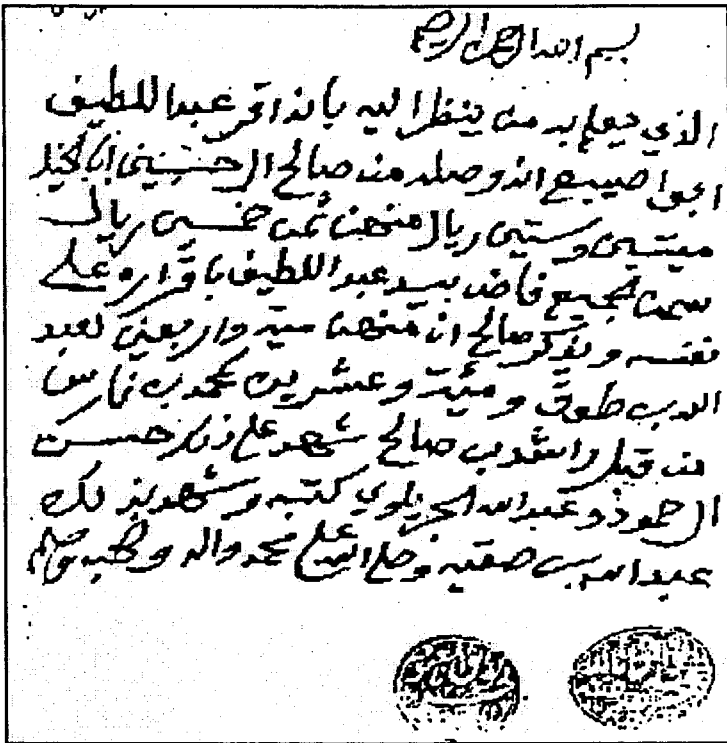 بسم الله الرحمن الرحيم
الذي يعلم به من ينظر اليه بانه اقر عبد اللطيف
ابو اصيبع انه وصله من صالح الحسين ابالخيل
ميتين وستين ريال منهن ثمن خمسين ريال
سمن الجميع قاض بيد عبد اللطيف باقراره على
نفسه ويذكر صالح ان منهن ميه واربعين لعبد
الله بن طوق وميه وعشرين لمحمد بن فارس
من قبل راشد بن صالح شهد على ذلك حسن
الحمود وعبد الله الحريلوي كتبه وشهد بذلك
عبد الله بن صقيه وصلى الله على محمد واله وصحبه وسلم